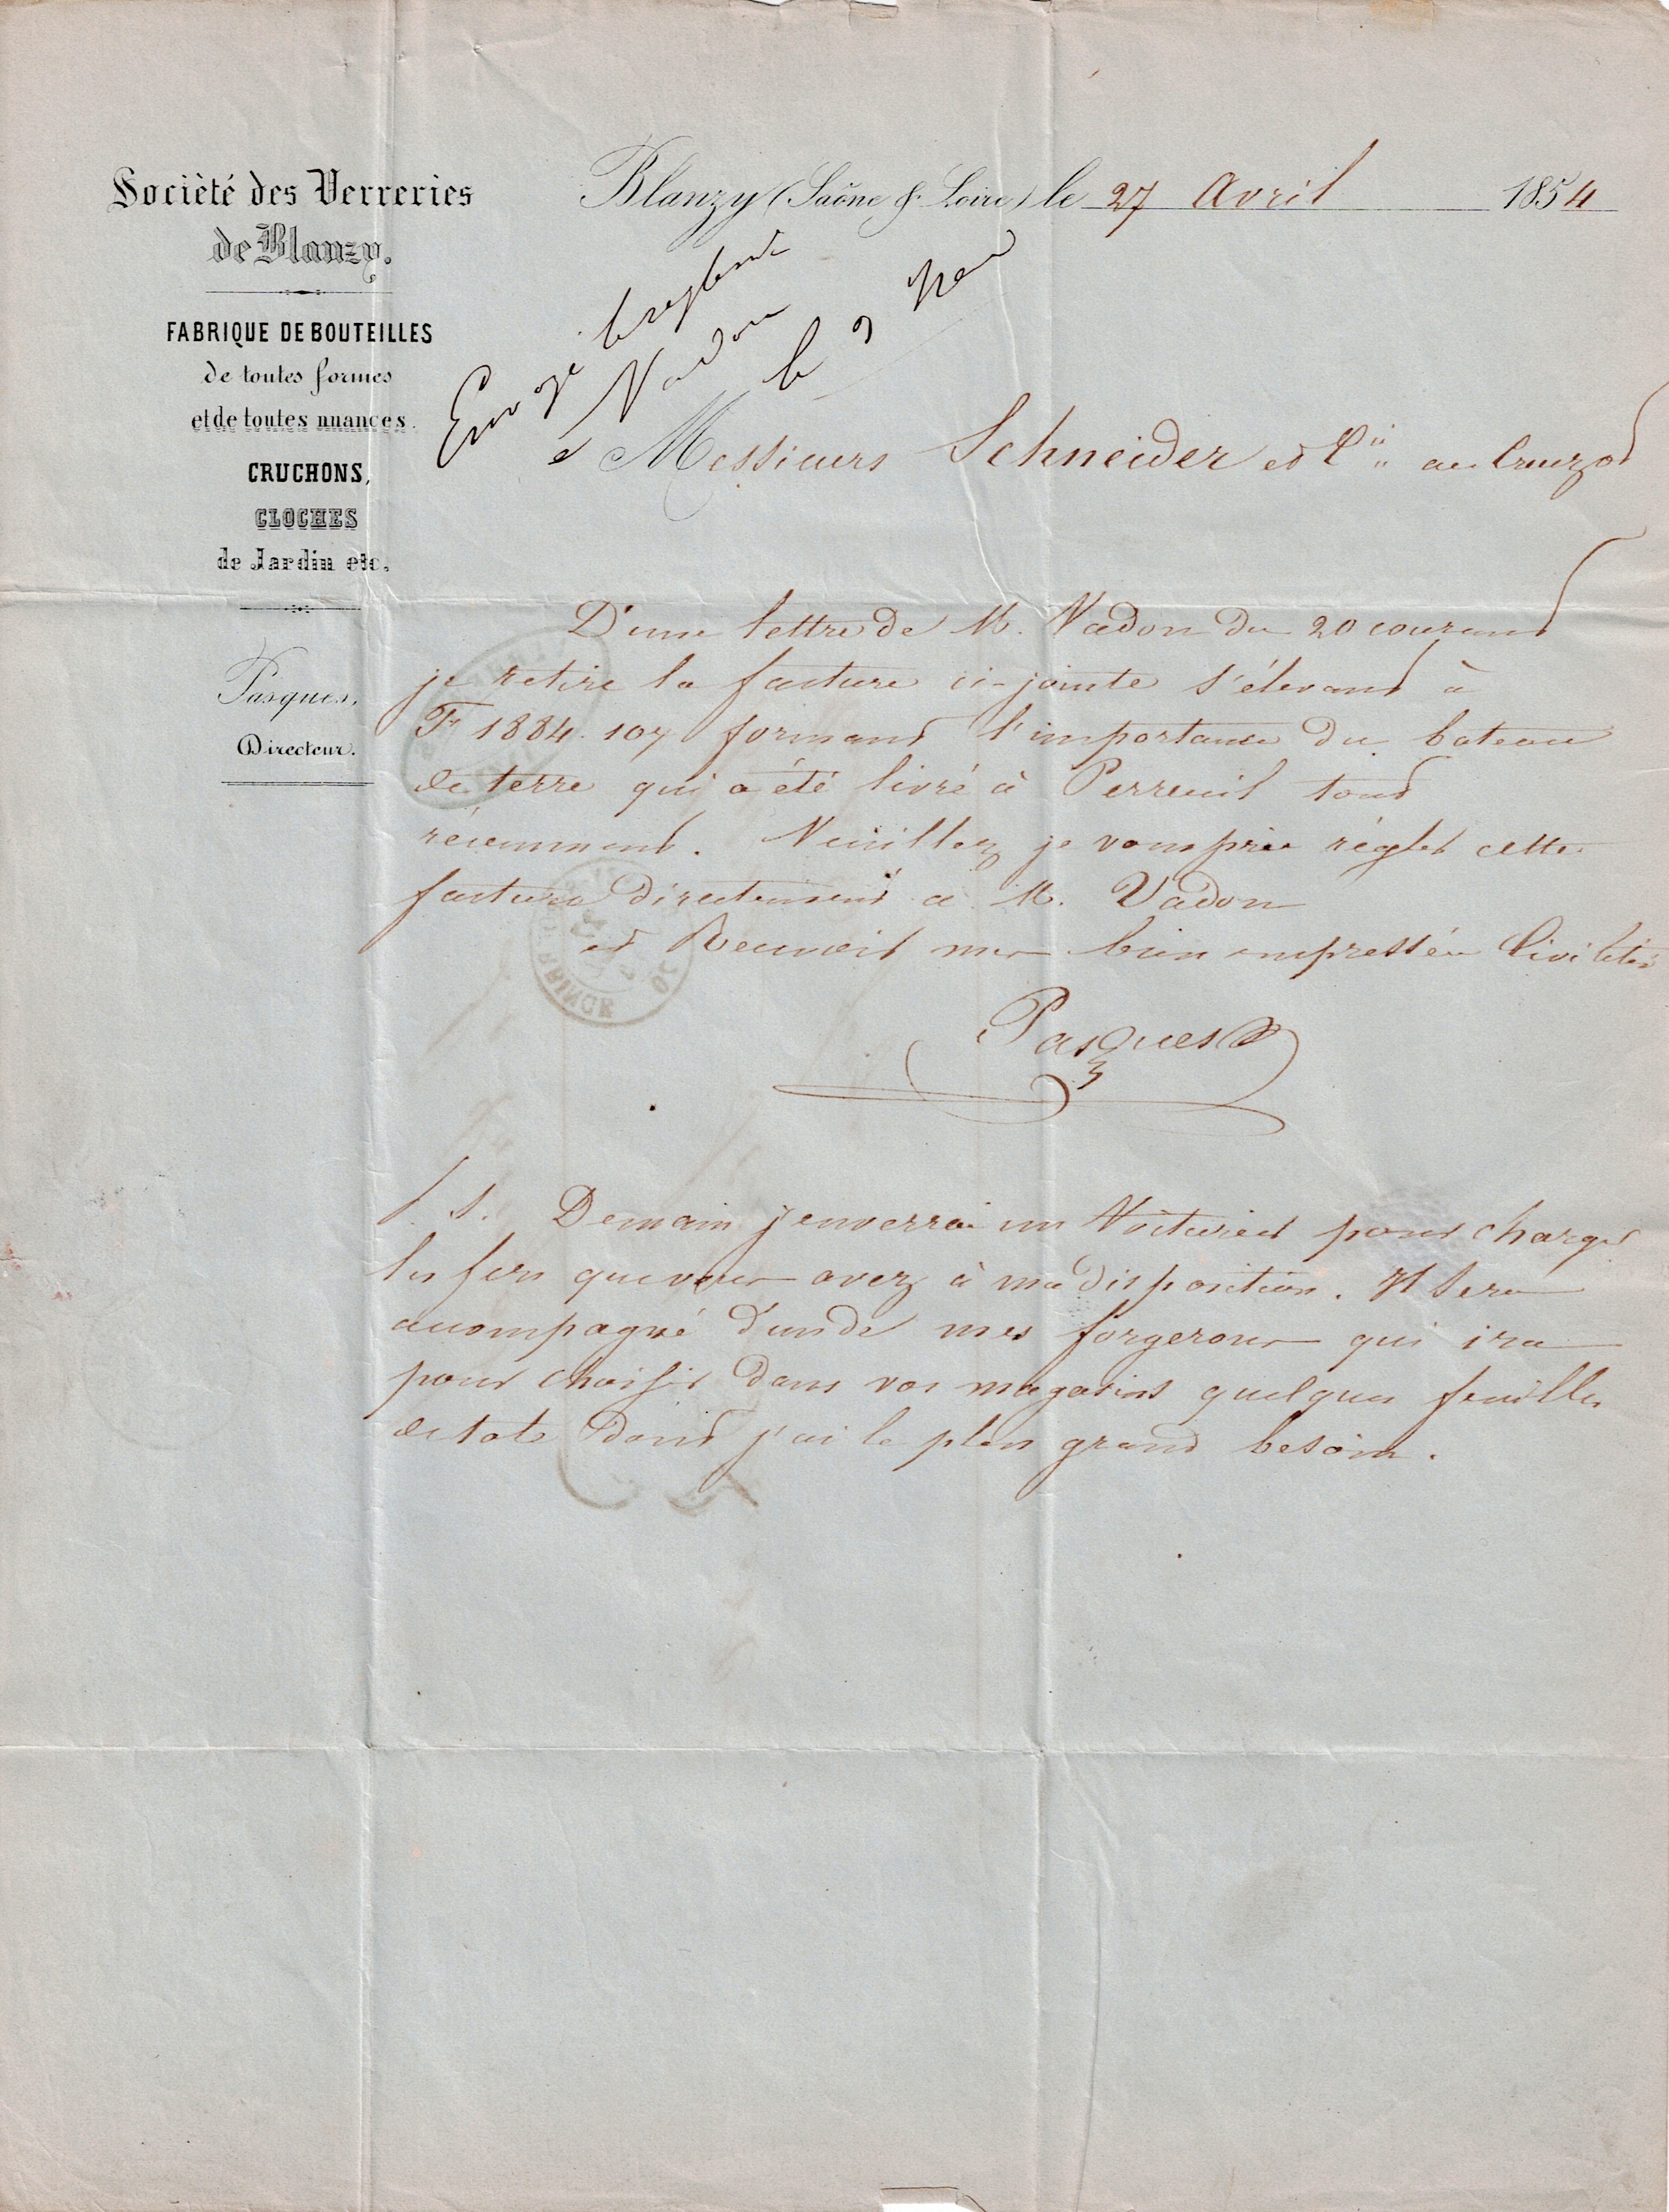 Société des Verreries
de Blanzy.
FABRIQUE DE BOUTEILLES
de toutes formes
et de toutes nuances.
CRUCHONS,
CLOCHES
de Jardin etc.
Pasques,
Directeur.
Blanzy (Saône & Loire) le 27 Avril 1854
Envoyé le
Vadon
le 9
Messieurs Schneider et Cie au Creuzot
D'une lettre de M. Vadon du 20 courant
je retire la facture ci-jointe s'élevant à
F 1884.107 formant l'importance du bateau
de terre qui a été livré à Perreuil tout
récemment. Veuillez je vous prie régler cette
facture directement à M. Vadon
et Recevoir mes bien empressées Civilités
Pasques
P. S. Demain j'enverrai un Voiturier pour charger
les fers que vous avez à ma disposition. Il sera
acompagné d'un de mes forgerons qui ira
pour choisir dans vos magasins quelques feuilles
de tole dont j'ai le plus grand besoin.